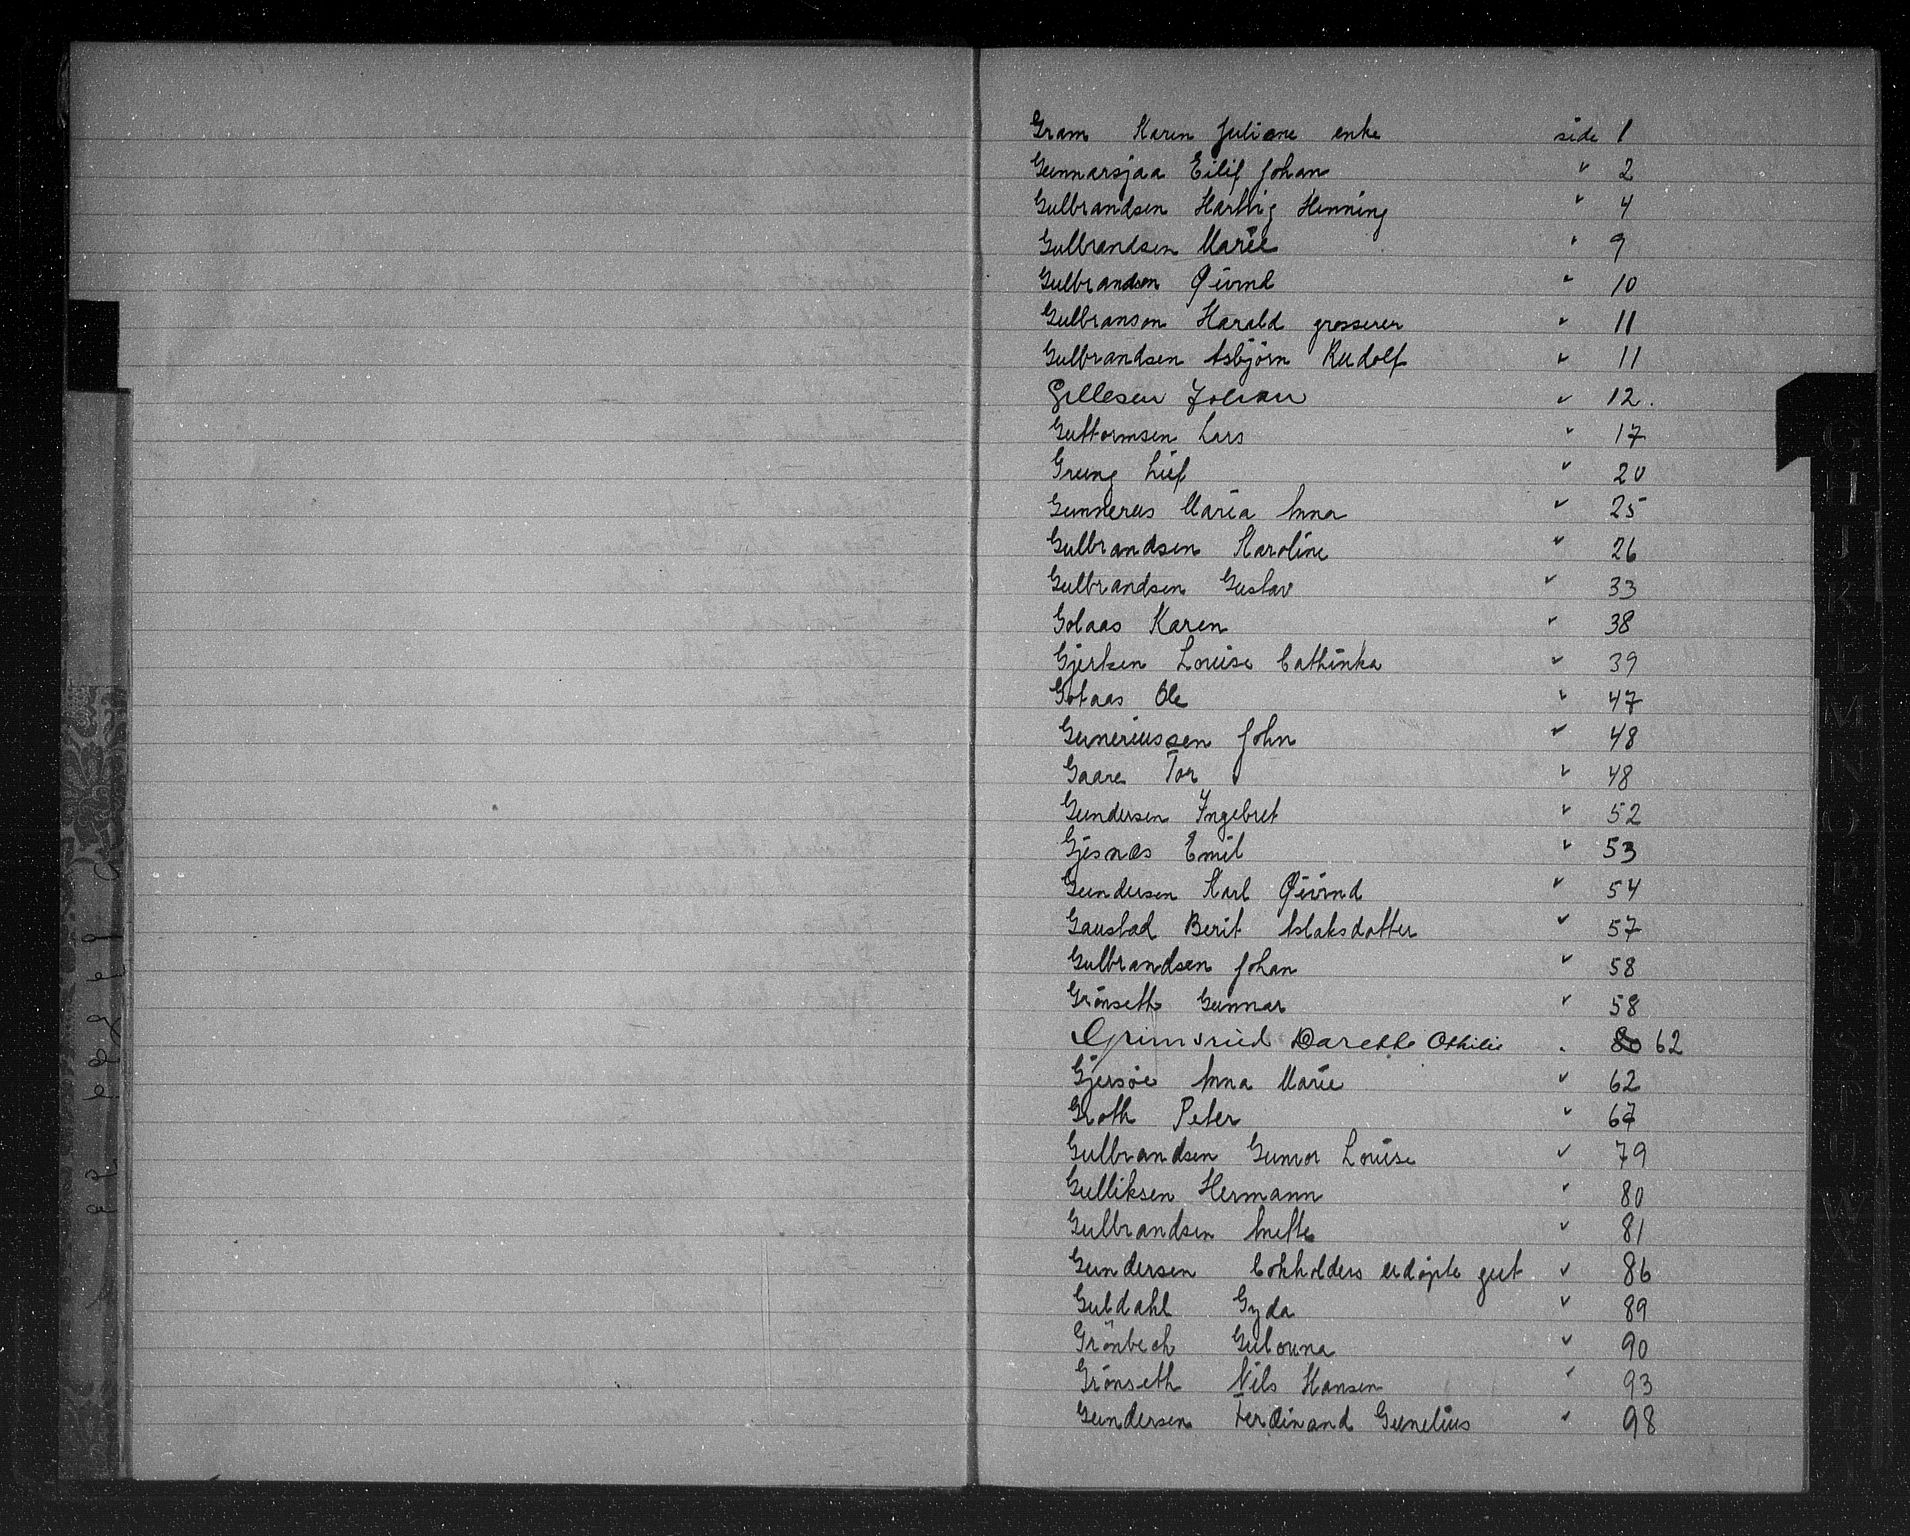 Gram Karen Juliane enke side 1
Gunnarsjaa Eilif Johan " 2
Gulbrandsen Hartvig Henning " 4
Gulbrandsen Marie " 9
Gulbrandsen Øivind " 10
Gulbranson Harald grosserer " 11
Gulbrandsen Asbjørn Rudolf " 11
Gillesen Johan " 12.
Guttormsen Lars " 17
Grung Leif " 20
Gunnerus Maria Anna " 25
Gulbrandsen Karoline " 26
Gulbrandsen Gustav " 33
Golaas Karen " 38
Gjertsen Louise Cathinka " 39
Gotaas Ole " 47
Guneriussen John " 48
Gaare Tor " 48
Gundersen Ingebret " 52
Gjesnæs Emil " 53
Gundersen Karl Øivind " 54
Gaustad Berit Aslaksdatter " 57
Gulbrandsen Johan " 58
Grönseth Gunnar " 58
Grimsrud Dorethe Othilie " 62
Gjersøe Anna Marie " 62
Groth Peter " 67
Gulbrandsen Gunvor Louise " 79
Gulliksen Hermann " 80
Gulbrandsen Anette " 81
Gundersen bokholders udøpte gut " 86
Guldahl Gyda " 89
Grönbech Gulouna " 90
Grönseth Nils Hansen " 93
Gundersen Ferdinand Gunelius " 98